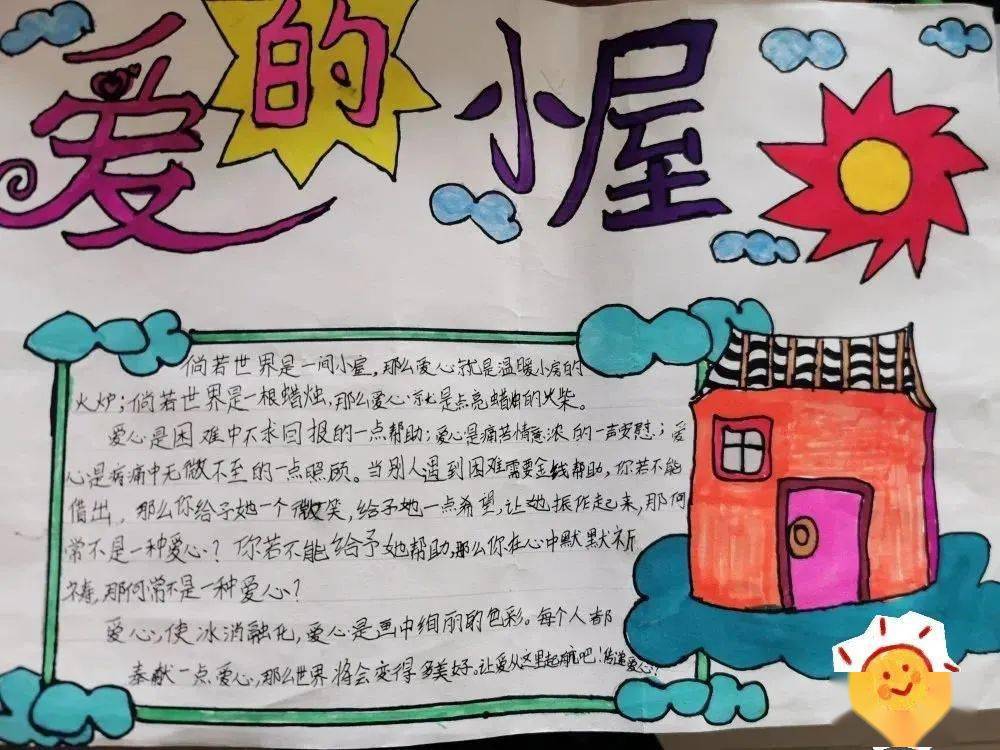 爱的小屋
倘若世界是一间小屋,那么爱心就是温暖小房的
火炉;倘若世界是一根蜡烛,那么爱心就是点亮蜡烛的火柴。
爱心是困难中不求回报的一点帮助;爱心是痛苦情意浓的一声安慰;爱
心是病痛中无微不至的一点照顾。当别人遇到困难需要金钱帮助,你若不能
借出,那么你给予她一个微笑,给予她一点希望,让她振作起来,那何
常不是一种爱心?你若不能给予她帮助,那么你在心中默默祈
祷,那何常不是一种爱心?
爱心,使冰消融化,爱心是画中绚丽的色彩。每个人都
奉献一点爱心,那么世界将会变得多美好。让爱从这里起航吧!传递爱心!